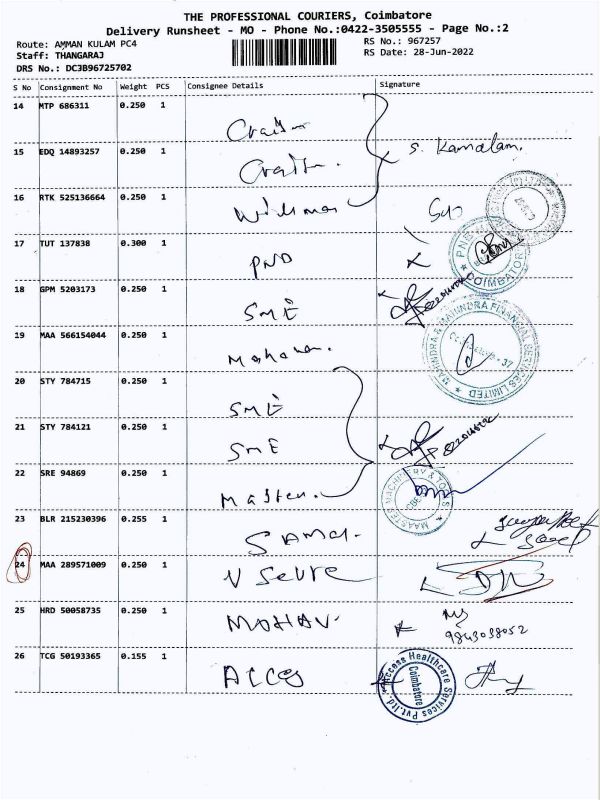 THE PROFESSIONAL COURIERS, Coimbatore
Delivery Runsheet - MO - Phone No.:0422-3505555 - Page No.:2
Route: AMMAN KULAM PC4
RS No.: 967257
Staff: THANGARAJ
RS Date: 28-Jun-2022
DRS No.: DC3B96725702
S No Consignment No Weight PCS Consignee Details Signature
14 MTP 686311 0.250 1
15 EDQ 14893257 0.250 1 S. Kamalam.
16 RTK 525136664 0.250 1
17 TUT 137838 0.300 1 PND
COIMBATORE
18 GPM 5203173 0.250 1 SME
19 MAA 566154044 0.250 1
MAHINDRA & MAHINDRA FINANCIAL SERVICES LIMITED
20 STY 784715 0.250 1 SME
21 STY 784121 0.250 1 SME
22 SRE 94869 0.250 1 Master.
MAASTER MACHINERY & TOOLS
23 BLR 215230396 0.255 1
24 MAA 289571009 0.250 1 V Seure
25 HRD 50058735 0.250 1 MOHAV.
9843038052
26 TCG 50193365 0.155 1
Access Healthcare Services Pvt.Ltd.
Coimbatore